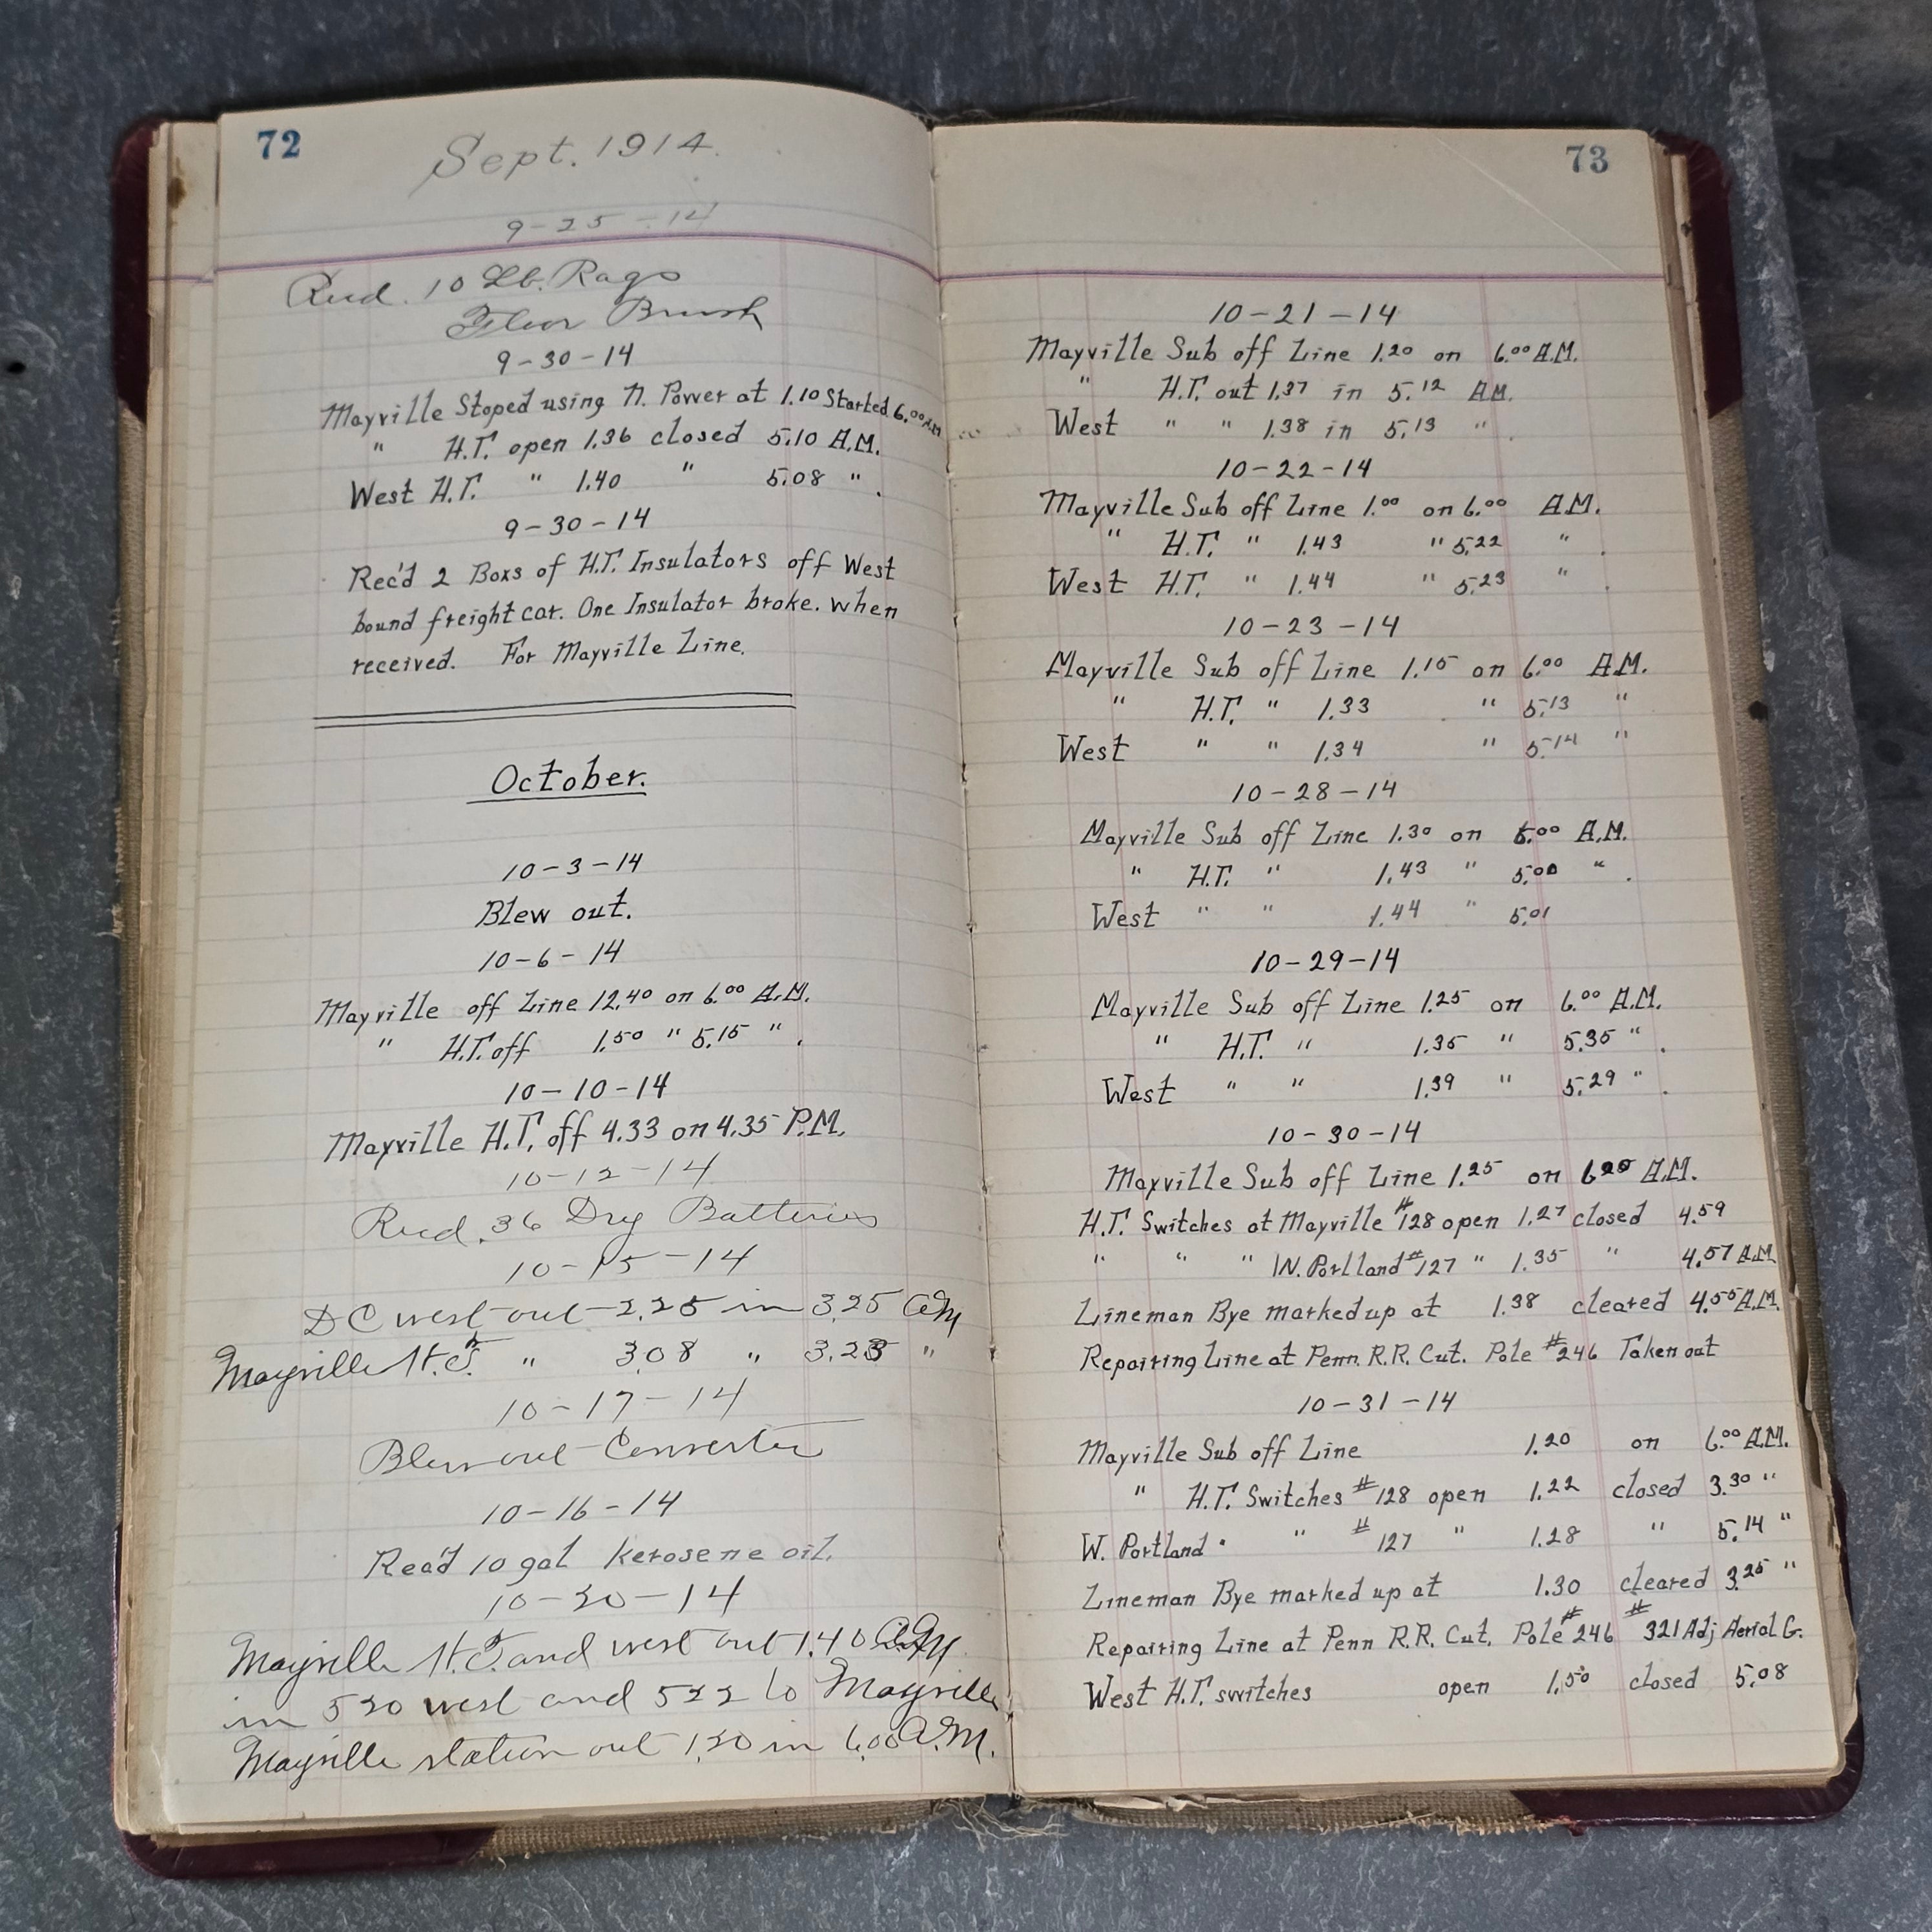 72
Sept. 1914.
9-25-14
Recd. 10 Lb. Rags
Floor Brush
9-30-14
Mayville Stoped using N. Power at 1.10 Started 6.00 A.M.
" H.T. open 1.36 closed 5.10 A.M.
West H.T. " 1.40 " 5.08 ".
9-30-14
Rec'd 2 Boxs of H.T. Insulators off West
bound freight car. One Insulator broke. when
received. For Mayville Line.
October.
10-3-14
Blew out.
10-6-14
Mayville off Line 12.40 on 6.00 A.M.
" H.T. off 1.50 " 5.15 ".
10-10-14
Mayville H.T. off 4.33 on 4.35 P.M.
10-12-14
Recd. 36 Dry Batteries
10-15-14
DC west out 2.25 in 3.25 AM
Mayville H.T. " 3.08 " 3.23 "
10-17-14
Blew out Converter
10-16-14
Rec'd 10 gal Kerosene oil.
10-20-14
Mayville H.T. and west out 1.40 A.M
in 520 west and 522 to Mayville
Mayville station out 1.20 in 6.00 A.M.
73
10-21-14
Mayville Sub off Line 1.20 on 6.00 A.M.
" H.T. out 1.37 in 5.12 AM.
West " " 1.38 in 5.13 ".
10-22-14
Mayville Sub off Line 1.00 on 6.00 A.M.
" H.T. " 1.43 " 5.22 ".
West H.T. " 1.44 " 5.23 ".
10-23-14
Mayville Sub off Line 1.15 on 6.00 A.M.
" H.T. " 1.33 " 5.13 "
West " " 1.34 " 5.14 "
10-28-14
Mayville Sub off Line 1.30 on 6.00 A.M.
" H.T. " 1.43 " 5.00 ".
West " " 1.44 " 5.01
10-29-14
Mayville Sub off Line 1.25 on 6.00 A.M.
" H.T. " 1.35 " 5.35 ".
West " " 1.39 " 5.29 ".
10-30-14
Mayville Sub off Line 1.25 on 6 20 A.M.
H.T. Switches at Mayville #128 open 1.27 closed 4.59
" " " W. Portland #127 " 1.35 " 4.57 A.M
Lineman Bye marked up at 1.38 cleared 4.55 A.M.
Repairing Line at Penn. R.R. Cut. Pole #246 Taken out
10-31-14
Mayville Sub off Line 1.20 on 6.00 A.M.
" H.T. Switches #128 open 1.22 closed 3.30 "
W. Portland " #127 " 1.28 " 5.14 "
Lineman Bye marked up at 1.30 cleared 3.25 "
Repairing Line at Penn R.R. Cut. Pole #246 #321 Adj Aerial G.
West H.T. switches open 1.50 closed 5.08